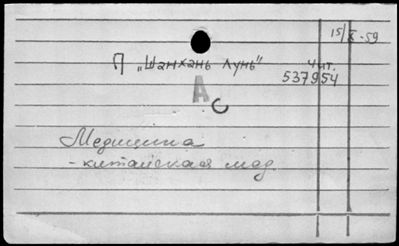 15/X-59
П „Шанхань лунь" Чит.
537954
А
С
Медицина
- китайская мед.